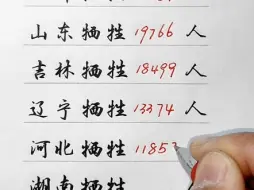 山东牺牲19766人
吉林牺牲18499人
辽宁牺牲13374人
河北牺牲1185
湖南牺牲